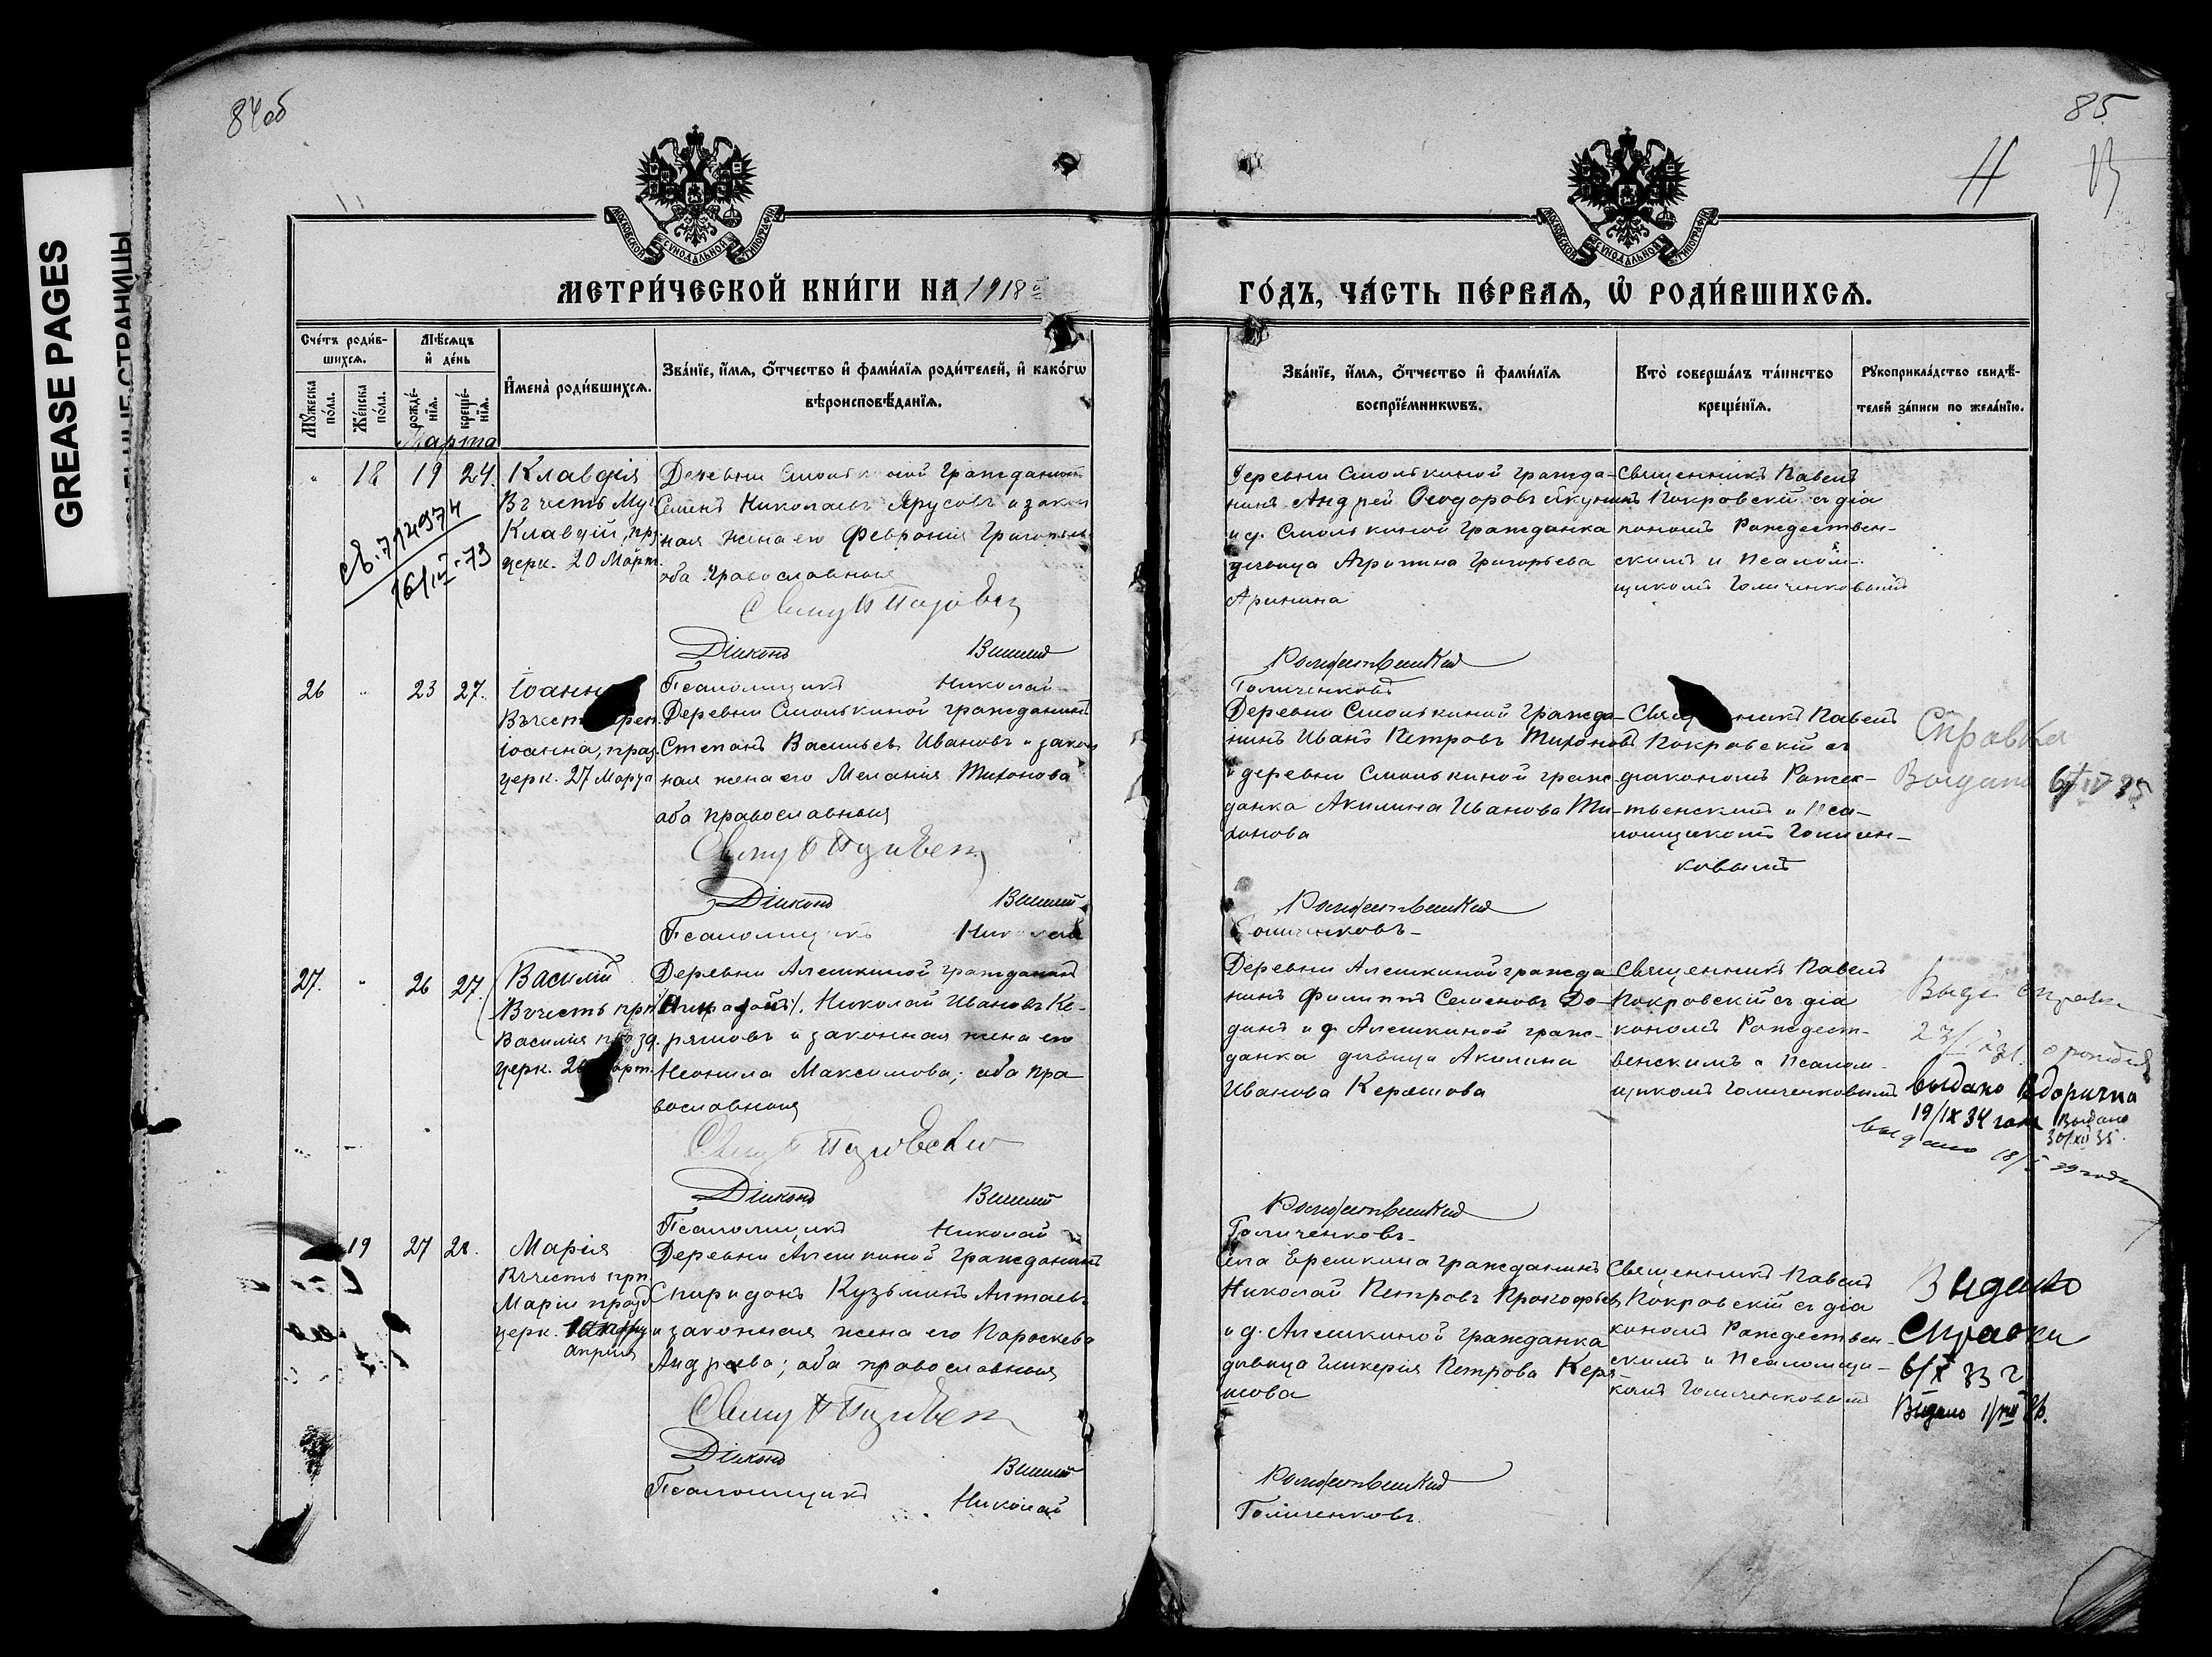 84об
85
GREASE PAGES
МОСКОВСКОЙ СѴНОДАЛЬНОЙ ТИПОГРАФІИ
МОСКОВСКОЙ СѴНОДАЛЬНОЙ ТИПОГРАФІИ
МЕТРИ́ЧЕСКОЙ КНИ́ГИ НА 1918 й
ГО́ДЪ, ЧА́СТЬ ПЕ́РВАЯ, Ѡ РОДИ́ВШИХСЯ.
Сче́тъ роди́в-
шихся.
Мꙋ́жеска по́ла.
Же́нска по́ла.
Мѣ́сяцъ и де́нь
рожде́-нія.
креще́-нія.
И́мена̀ роди́вшихся.
Зва́ніе, и́мя, о́тчество и фами́лія роди́телей, и како́гѡ
вѣроисповѣ́данія.
Зва́ніе, и́мя, о́тчество и фами́лія
воспріе́мникѡвъ.
Кто̀ соверша́лъ та́инство
креще́нія.
Рꙋкоприкла́дство свидѣ́-
телей за́писи по жела́нію.
Марта
" 18 19 24. Клавдія
Въ честь Му
Клавдіи, пр
церк. 20 Март.
16/IV-73
Деревни Смолькиной Гражданинъ
Семенъ Николаевъ Ярусовъ и закон
ная жена его Феврония Григорьева
оба Православныя
Діаконъ Василій
Псаломщикъ Николай
Деревни Смолькиной гражда-
нинъ Андрей Ѳеодоровъ Якунинъ
и д. Смолькиной гражданка
дѣвица Агрипина Григорьева
Аринина
Священникъ Павелъ
Покровскій съ діа
кономъ Рождествен-
скимъ и Псалом-
щикомъ Голиченковымъ
Рождественскій
Голиченковъ
26 " 23 27. Іоаннъ
Въ честь преп.
Іоанна, праз
церк. 27 Марта
Деревни Смолькиной гражданинъ
Степанъ Васильевъ Ивановъ и закон
ная жена его Мелания Тихонова
оба православныя
Діаконъ Василій
Псаломщикъ Николай
Деревни Смолькиной гражда-
нинъ Иванъ Петровъ Тихоновъ
и деревни Смолькиной граж-
данка Акилина Иванова Ти-
хонова
Священникъ Павелъ
Покровскій съ
діакономъ Рожде-
ственскимъ и Пса-
ломщикомъ Голичен-
ковымъ
Справка
Выдана
Рождественскій
Голиченковъ
27. " 26 27. Василій
Въ честь прп
Василія празд.
церк. 26 Март.
Деревни Алешкиной гражданинъ
Николай Ивановъ Ке-
ряшовъ и законная жена его
Неонила Максимова; оба пра-
вославныя
Діаконъ Василій
Псаломщикъ Николай
Деревни Алешкиной гражда-
нинъ Филиппъ Семеновъ До-
динъ и д. Алешкиной граж-
данка дѣвица Акилина
Иванова Керяшова
Священникъ Павелъ
Покровскій съ діа
кономъ Рождест-
венскимъ и Псалом-
щикомъ Голиченковымъ
выдано Вдорична
19/IX 34 года Выдано
30/XII 35.
выдано
Рождественскій
Голиченковъ
19 27 28. Марія
Въ честь прп.
Маріи празд
церк.
апрѣля
Деревни Алешкиной Гражданинъ
Спиридонъ Кузьминъ Алтаевъ
и законная жена его Параскева
Андреева; оба православныя
Діаконъ Василій
Псаломщикъ Николай
Села Ерешкина гражданинъ
Николай Петровъ Прокофьев
и д. Алешкиной гражданка
дѣвица Гликерія Петрова Керя-
шова
Священникъ Павелъ
Покровскій съ діа
кономъ Рождествен-
скимъ и Псаломщи-
комъ Голиченковымъ
Выдано
Справки
6/X 33 г
Рождественскій
Голиченковъ.